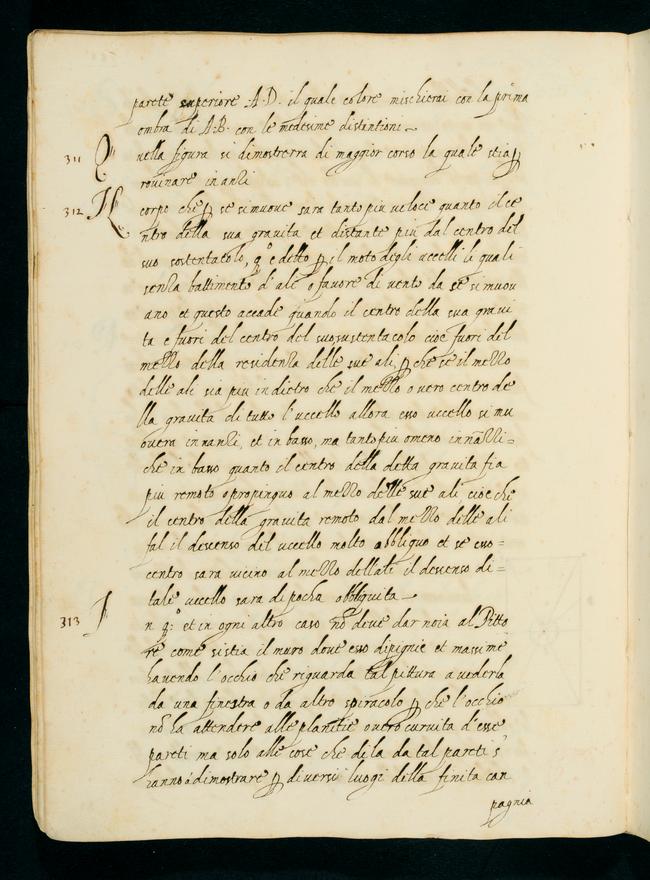 parete superiore A.D. il quale colore mischierai con la prima
ombra di A.B. con le medesime distentioni
311 Q
uella figura si dimosterra di maggior corso la quale stia ꝑ
rovinare inanzi
312 Il
corpo che ꝑ se si muove sara tanto piu veloce quanto il ce
ntro della sua gravita et distante piu dal centro del
suo sostentacolo, qº e detto ꝑ il moto degli uccelli li quali
senza battimento d'ale o favore di vento da se si muou
ano et questo accade quando il centro della sua gravi
ta e fuori del centro del suo sustentacolo cioe fuori del
mezzo della residenza delle sue ali, ꝑ che se il mezzo
delle ali sia piu indietro che il mezzo overo centro de
lla gravita di tutto l'uccello allora esso uccello si mu
overa innanzi, et in basso, ma tanto piu o meno innāzzi =
che in basso quanto il centro della detta gravita fia
piu remoto o propinquo al mezzo delle sue ali cioe che
il centro della gravita remoto dal mezzo delle ali
fa il descenso del uccello molto obbliquo et se esso =
centro sara vicino al mezzo dell ali il descenso di =
tale uccello sara di pocha obbliquita
313 I
n qº: et in ogni altro caso nō deve dar noia al Pitto
re come si stia il muro dove esso dipignie et massime
havendo l'occhio che riguarda tal pittura a vederla
da una finestra o da altro spiracolo ꝑ che l'occhio
nō ha attendere alle planitie overo curvita d'esse
pareti ma solo alle cose che di la da tal pareti s'
hanno à dimostrare ꝑ diversi luogi della finita can
pagnia